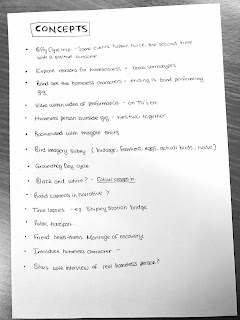 CONCEPTS
• Biffy Clyro inspo - Same events happen twice, the second time
with a positive outcome
• Explore reasons for homelessness - break stereotypes
• Band are the homeless characters - ending is band performing
gig
• Video within video of performance - on TV's etc
• Homeless person outside gig - ties two together
• Bookended with magpie shots
• Bird imagery subtly (birdcage, feathers, eggs, actual birds, nest)
• Groundhog Day cycle
• Black and white? - Colour creeps in
• Band cameos in narrative?
• Time lapses - e.g. Shipley Station bridge
• Public transport
• Friend helps them. Montage of recovery.
• Introduce homeless character -
• Starts with interview of real homeless person?